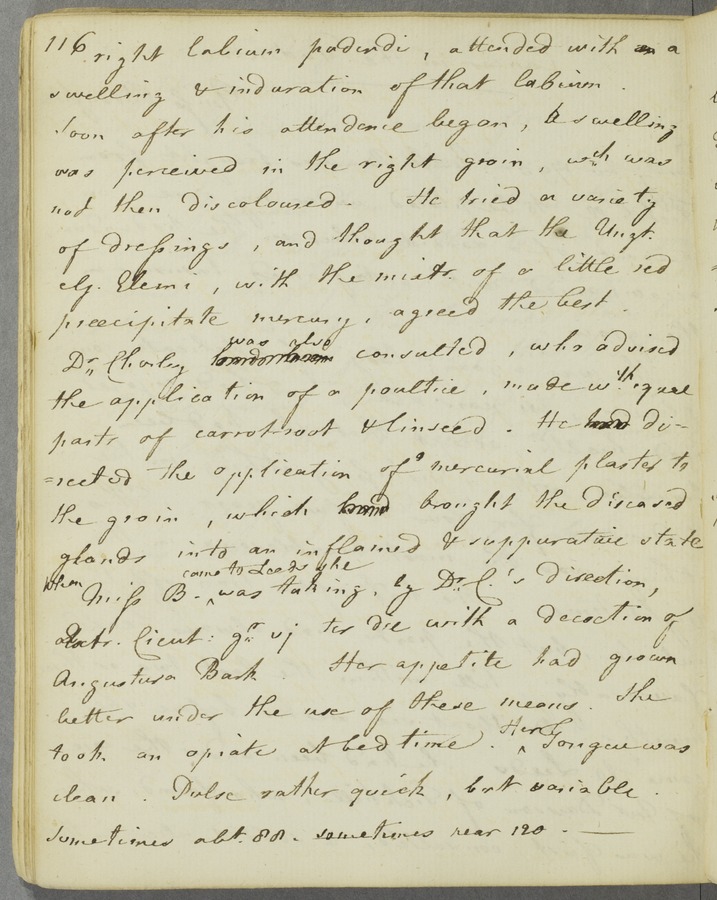 116 right labium pudendi, attended with a
swelling & induration of that labium.
Soon after his attendance began, a swelling
was perceived in the right groin, wch was
not then discoloured. He tried a variety
of dressings, and thought that the Ungt.
Elemi, with the mixtr. of a little red
precipitate mercury, agreed the best.
was also
Dr. Chorley consulted, who advised
the application of a poultice, made wth. equal
parts of carrot-root & linseed. He di-
=rected the application of mercurial plaster to
the groin, which brought the diseased
glands into an inflamed & suppurative state
When came to Leeds she
Miss B. ^ was taking, by Dr. C.'s direction,
Extr. Cicut: gr. vj ter die with a decoction of
Angustura Bark. Her appetite had grown
better under the use of these means. She
took an opiate at bed time. Her ^ Tongue was
clean. Pulse rather quick, but variable.
Sometimes abt. 88. sometimes near 120. —